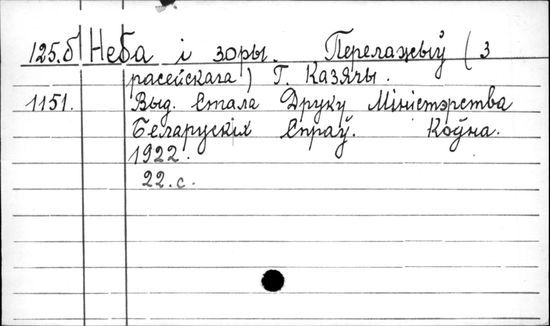 125.б Неба і зоры. Перелажыў (з
расейскага) Г. Казячы.
1151. Выд. Стала Друку Міністэрства
Беларускіх Спраў. Коўна.
1922.
22.с.